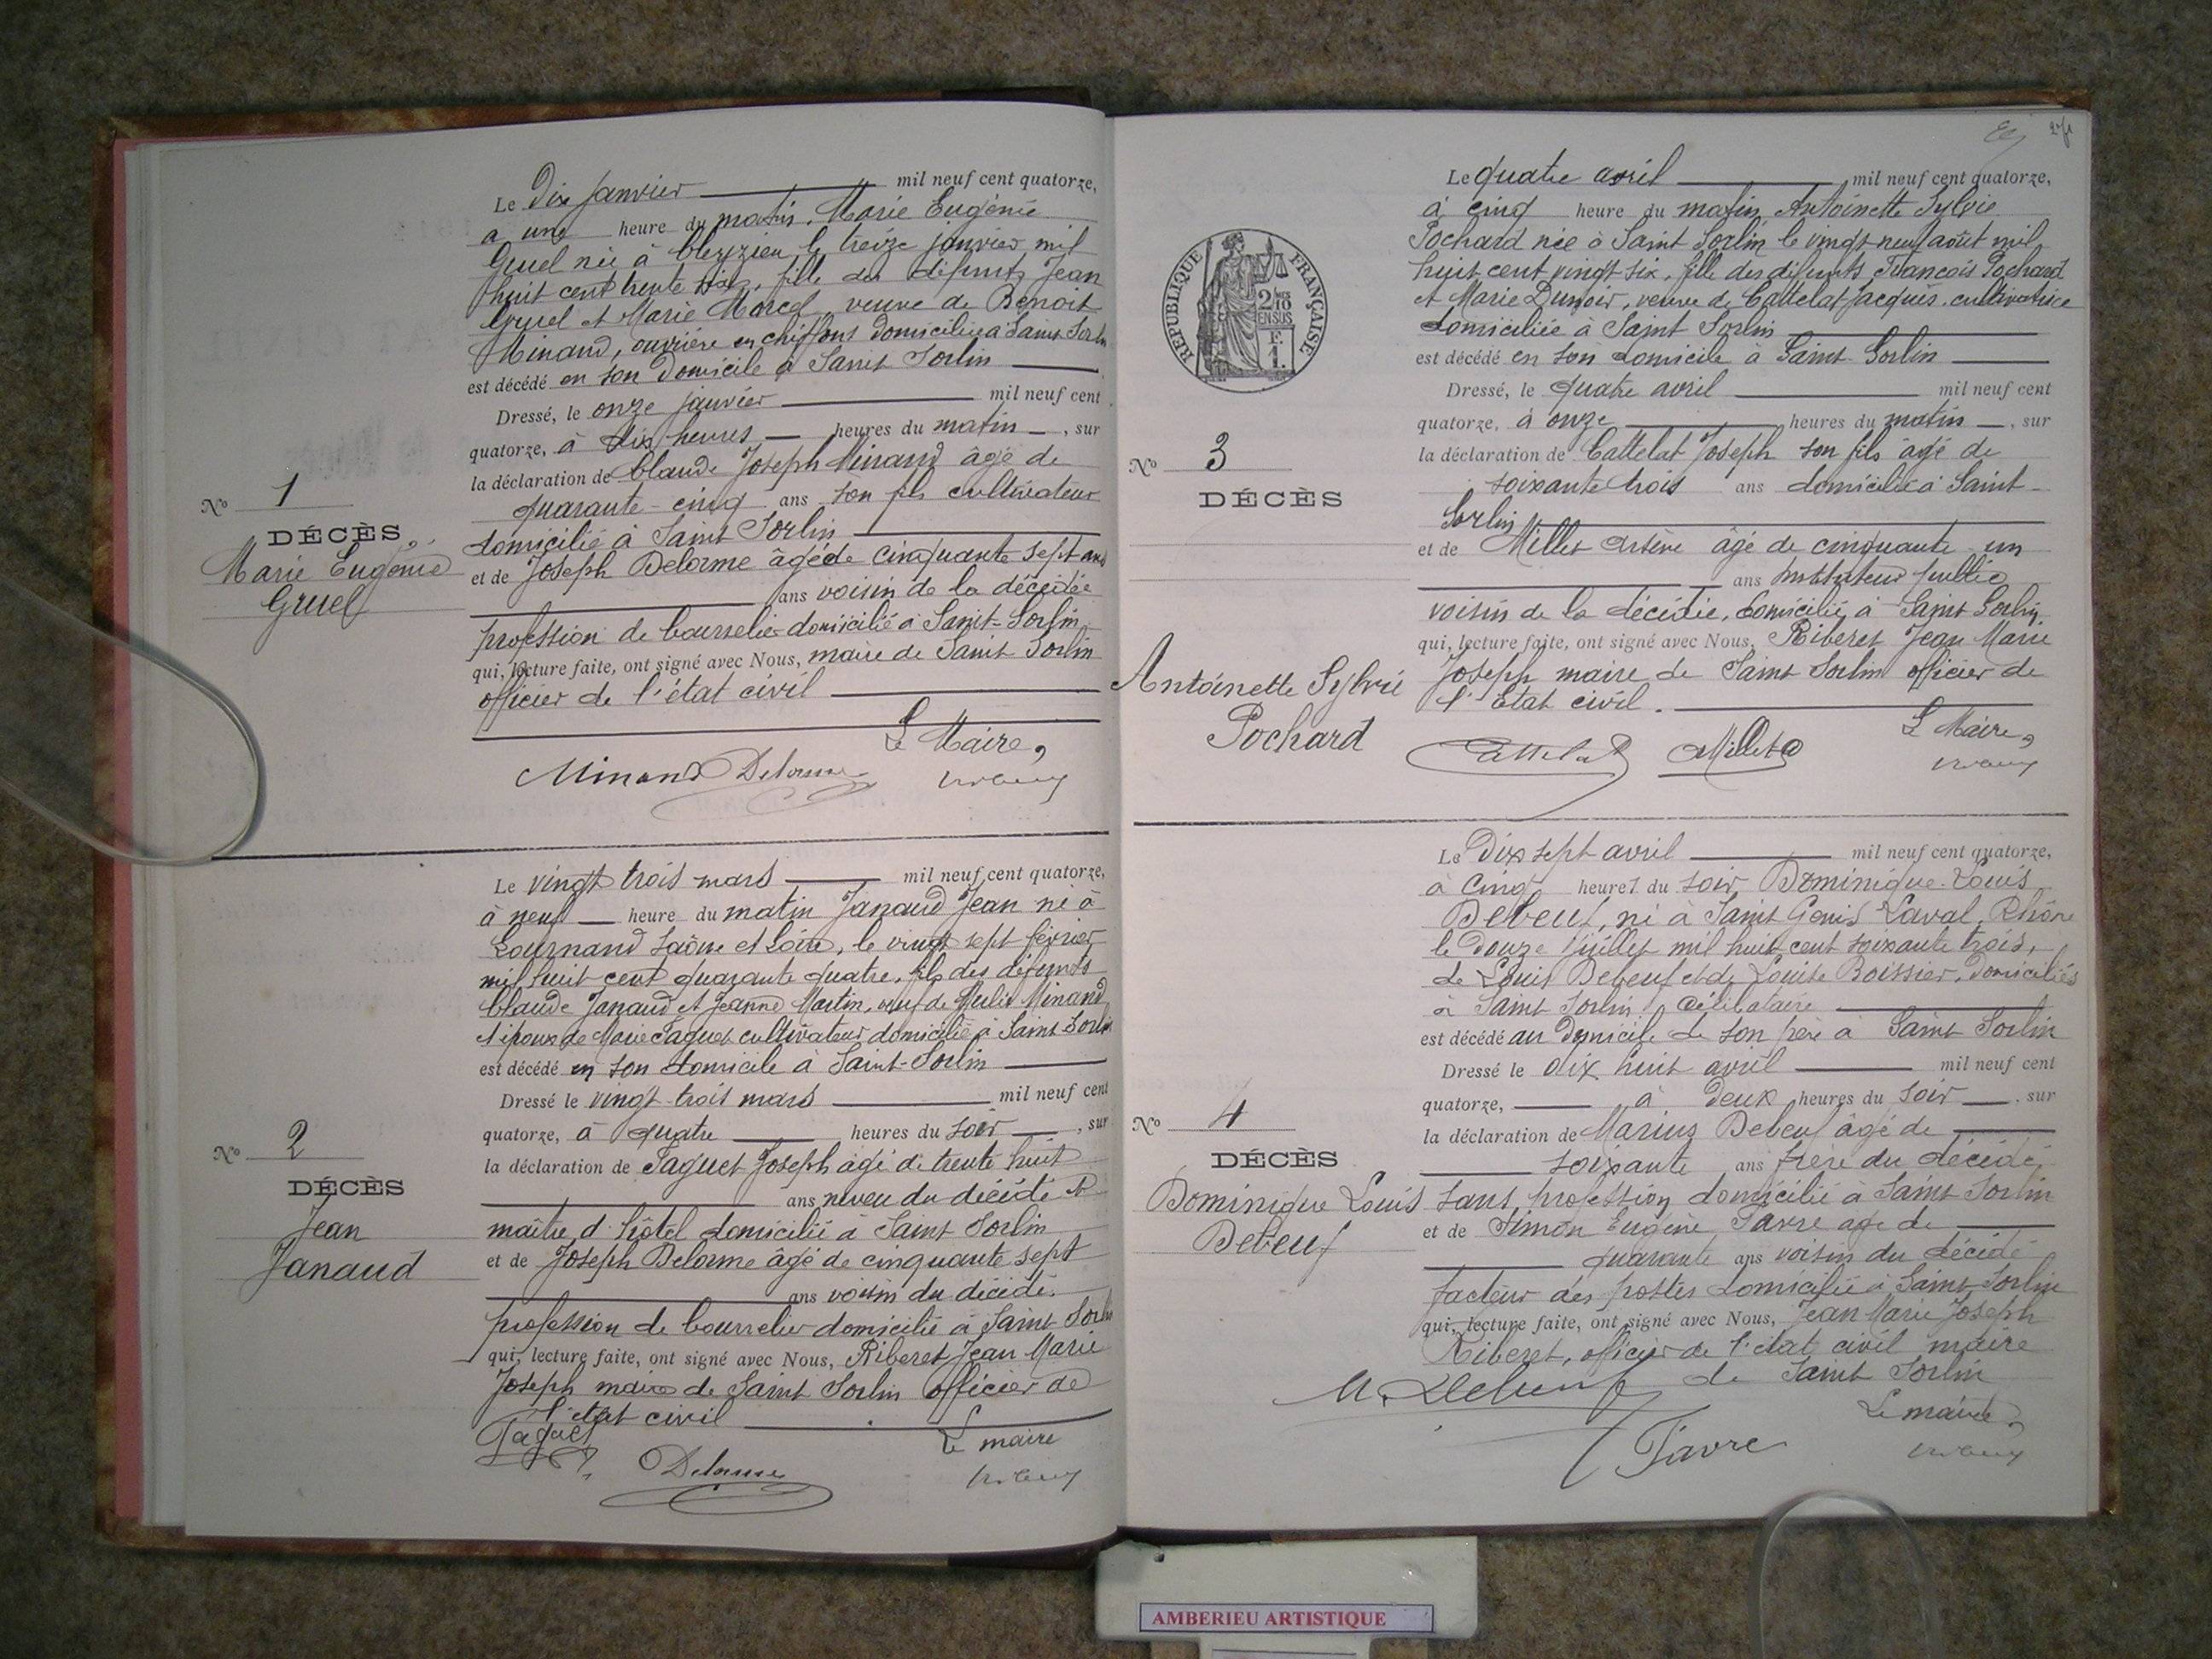 Le Dix janvier mil neuf cent quatorze,
a une heure du matin, Marie Eugénie
Gruel née à Cleyzieu le treize janvier mil
huit cent trente six, fille des défunts Jean
Gruel et Marie Morel, veuve de Benoit
Minand, ouvrière en chiffons domiciliée à Saint Sorlin
est décédé en son domicile à Saint Sorlin
Dressé, le onze janvier mil neuf cent
quatorze, à dix heures heures du matin, sur
la déclaration de Claude Joseph Minand âgé de
quarante-cinq ans son fils cultivateur
domicilié à Saint Sorlin
et de Joseph Delorme âgé de cinquante sept ans
ans voisin de la décédée
profession de bourrelier domicilié à Saint-Sorlin
qui, lecture faite, ont signé avec Nous, maire de Saint Sorlin
officier de l'état civil
Le Maire,
Minand Delorme
No 1
DÉCÈS
Marie Eugénie
Gruel
Le vingt trois mars mil neuf cent quatorze,
à neuf heure du matin Janaud Jean né à
Lournand Saône et Loire, le vingt sept février
mil huit cent quarante quatre, fils des défunts
Claude Janaud et Jeanne Martin, veuf de Minand
et époux de Marie Jaquet cultivateur domicilié à Saint Sorlin
est décédé en son domicile à Saint-Sorlin
Dressé le vingt-trois mars mil neuf cent
quatorze, à quatre heures du soir, sur
la déclaration de Jaquet Joseph âgé de trente huit
ans neveu du décédé et
maître d'hôtel domicilié à Saint Sorlin
et de Joseph Delorme âgé de cinquante sept
ans voisin du décédé
profession de bourrelier domicilié à Saint Sorlin
qui, lecture faite, ont signé avec Nous, Riberet Jean Marie
Joseph maire de Saint Sorlin officier de
l'état civil
Le maire
Jaquet
Delorme
No 2
DÉCÈS
Jean
Janaud
Le quatre avril mil neuf cent quatorze,
à cinq heure du matin Antoinette Sylvie
Pochard née à Saint Sorlin le vingt-neuf août mil
huit cent vingt six, fille des défunts François Pochard
et Marie Dunoir, veuve de Cattelat Jacques, cultivatrice
domiciliée à Saint Sorlin
est décédé en son domicile à Saint-Sorlin
Dressé, le quatre avril mil neuf cent
quatorze, à onze heures du matin, sur
la déclaration de Cattelat Joseph son fils âgé de
soixante trois ans domicilié à Saint-
Sorlin
et de Millet Arsène âgé de cinquante un
ans instituteur public
voisin de la décédée, domicilié à Saint Sorlin,
qui, lecture faite, ont signé avec Nous, Riberet Jean Marie
Joseph maire de Saint Sorlin officier de
l'Etat civil.
Le Maire,
Cattelat Millet
RÉPUBLIQUE FRANÇAISE
2/10 EN SUS
F. 1.
No 3
DÉCÈS
Antoinette Sylvie
Pochard
Le Dix sept avril mil neuf cent quatorze,
à Cinq heures du soir, Dominique-Louis
Debeuf, né à Saint Genis Laval, Rhône
le douze juillet mil huit cent soixante trois,
de Louis Debeuf et de Louise Boissier, domiciliés
à Saint Sorlin, Célibataire
est décédé au Domicile de son père à Saint Sorlin
Dressé le dix huit avril mil neuf cent
quatorze, à Deux heures du soir, sur
la déclaration de Marius Debeuf âgé de
soixante ans frère du décédé,
sans profession domicilié à Saint Sorlin
et de Simon Eugène Favre âgé de
quarante ans voisin du décédé
facteur des postes domicilié à Saint Sorlin
qui, lecture faite, ont signé avec Nous, Jean Marie Joseph
Riberet, officier de l'état civil maire
de Saint Sorlin
M. Debeuf
Le maire,
Favre
No 4
DÉCÈS
Dominique Louis
Debeuf
AMBERIEU ARTISTIQUE